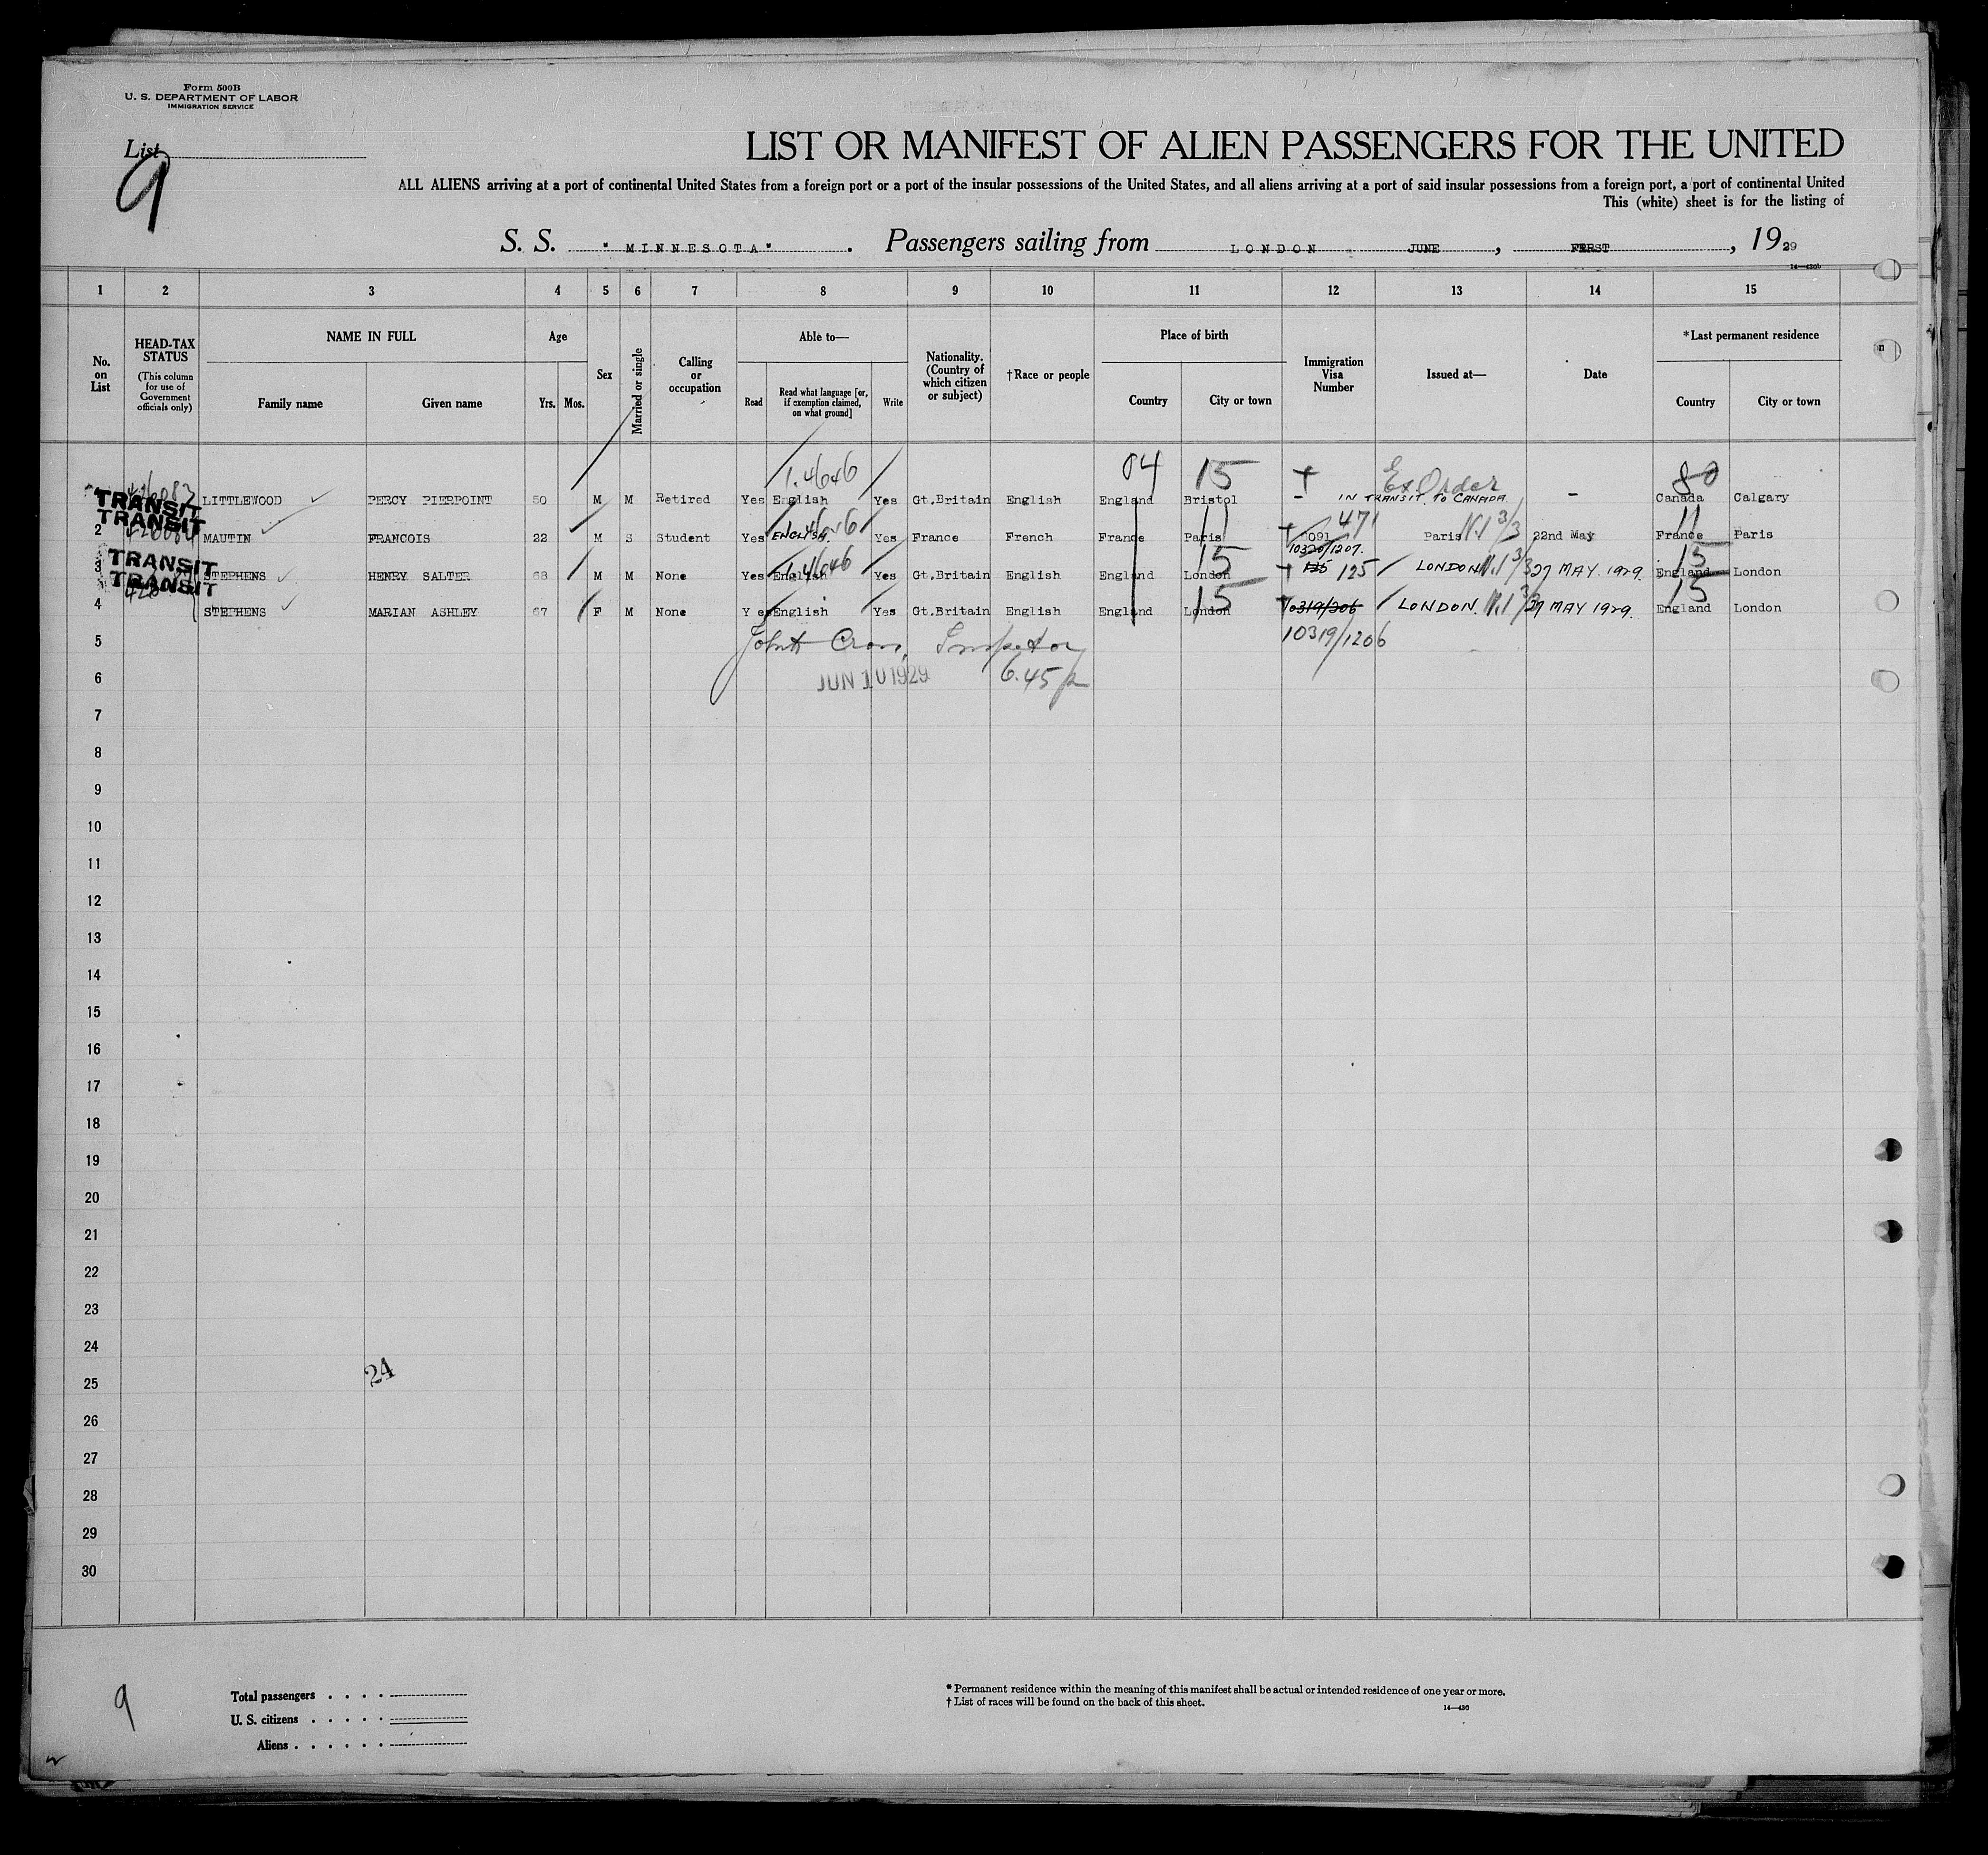 Form 500B
U. S. DEPARTMENT OF LABOR
IMMIGRATION SERVICE
List
9
LIST OR MANIFEST OF ALIEN PASSENGERS FOR THE UNITED
ALL ALIENS arriving at a port of continental United States from a foreign port or a port of the insular possessions of the United States, and all aliens arriving at a port of said insular possessions from a foreign port, a port of continental United
This (white) sheet is for the listing of
S. S. "MINNESOTA". Passengers sailing from LONDON JUNE, FIRST, 1929
14—430b
1 2 3 4 5 6 7 8 9 10 11 12 13 14 15
No. on List
HEAD-TAX STATUS (This column for use of Government officials only)
NAME IN FULL Family name Given name
Age Yrs. Mos.
Sex
Married or single
Calling or occupation
Able to— Read Read what language [or, if exemption claimed, on what ground] Write
Nationality. (Country of which citizen or subject)
†Race or people
Place of birth Country City or town
Immigration Visa Number
Issued at—
Date
*Last permanent residence Country City or town
1.4646 04 15 + Ex.Order 80
TRANSIT LITTLEWOOD PERCY PIERPOINT 50 M M Retired Yes English Yes Gt.Britain English England Bristol - IN TRANSIT TO CANADA. - Canada Calgary
TRANSIT
11 471 11
2 MAUTIN FRANCOIS 22 M S Student Yes ENGLISH. Yes France French France Paris Paris 22nd May France Paris
10320/1207.
15 15
TRANSIT
3 STEPHENS HENRY SALTER 68 M M None Yes English Yes Gt.Britain English England London 125 LONDON 27 MAY. 1929. England London
TRANSIT
15 15
4 STEPHENS MARIAN ASHLEY 67 F M None Yes English Yes Gt.Britain English England London 10319/206 LONDON. 27 MAY 1929. England London
5 Inspector 10319/1206
6 JUN 10 1929 6.45
7
8
9
10
11
12
13
14
15
16
17
18
19
20
21
22
23
24
25
24
26
27
28
29
30
9
Total passengers
U. S. citizens
Aliens
* Permanent residence within the meaning of this manifest shall be actual or intended residence of one year or more.
† List of races will be found on the back of this sheet.
14—430